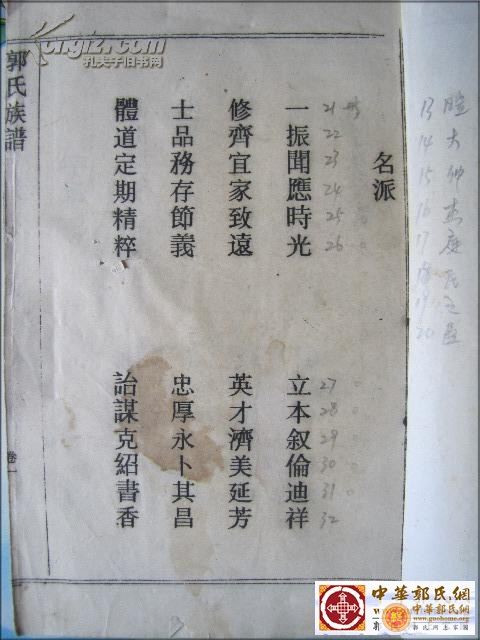 Kongfz.com
孔夫子旧书网
郭氏族譜
卷一
名派
一振聞應時光 立本叙倫迪祥
修齊宜家致遠 英才濟美延芳
士品務存節義 忠厚永卜其昌
體道定期精粹 詒謀克紹書香
21
22
23
24
25
26
27
28
29
30
31
32
13
14 大
15 仲
16
17 庭
18 民
19 之
20
中華郭氏網
中華郭氏網
www.guohome.org
郭氏網上家園